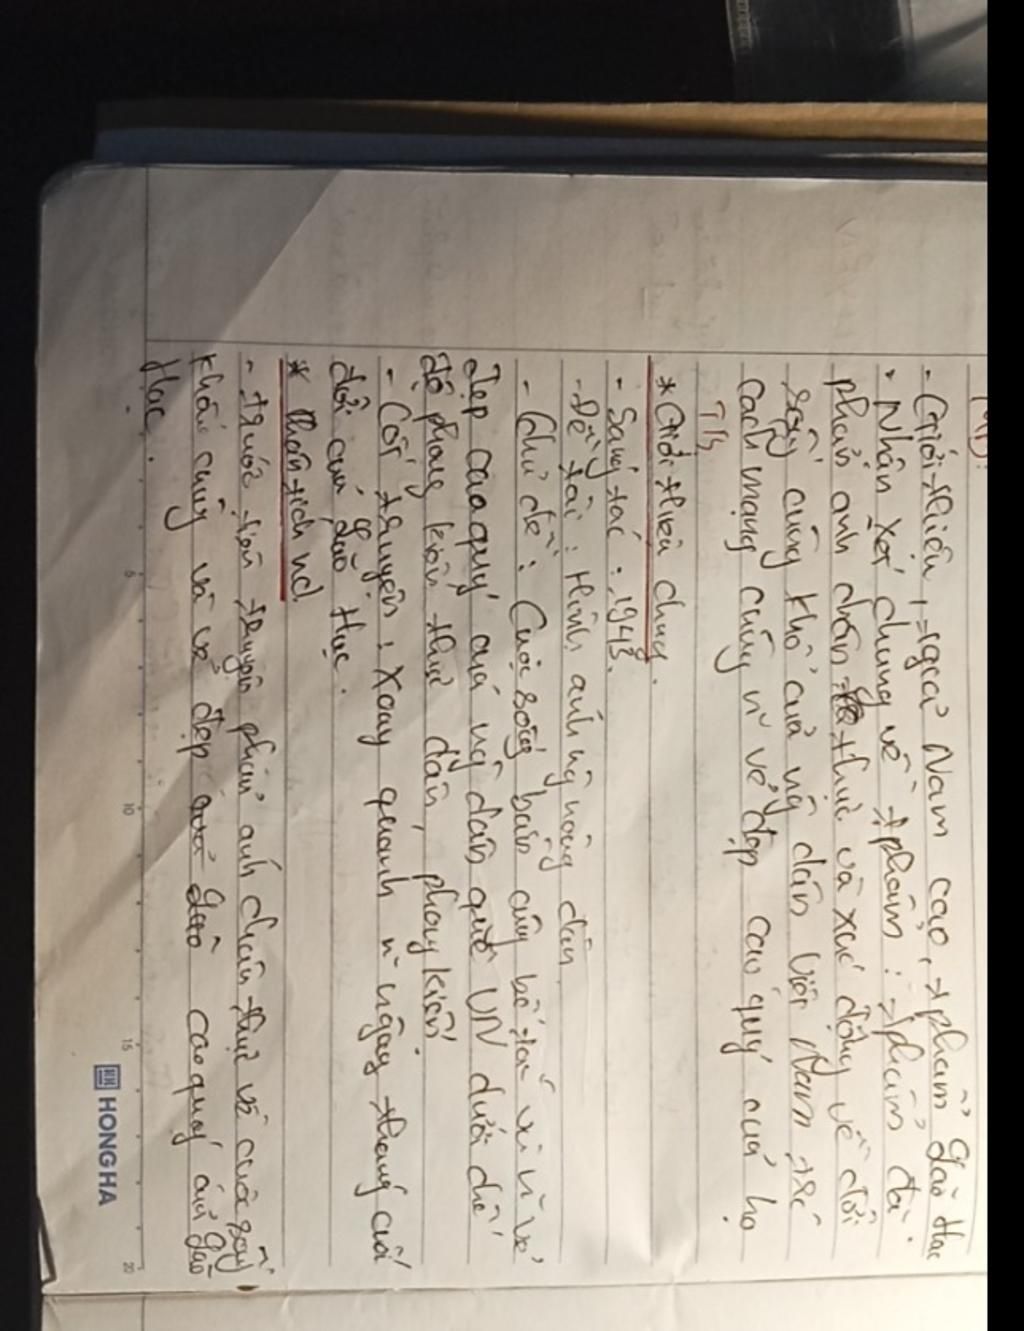 MB:
- Giới thiệu t=<giả Nam cao, tphẩm Lão Hạc
• Nhận xét chung về tphẩm: tphẩm đã
phản ánh chân thực và xúc động về đời
sống cùng khổ của ng dân Việt Nam trc
cách mạng cùng vs vẻ đẹp cao quý của họ.
TB
* Giới thiệu chung.
- Sáng tác: 1943.
- Đề tài: Hình ảnh ng nông dân
- Chủ đề: Cuộc sống bần cùng bế tắc vs vẻ
đẹp cao quý của ng dân quê VN dưới chế
độ phong kiến thực dân, phong kiến.
- Cốt truyện: Xoay quanh n ngày tháng cuối
đời của Lão Hạc.
* Phân tích nd.
- trước tiên truyện phản ánh chân thực về cuộc sống
khốn cùng và vẻ đẹp cao quý của Lão
Hạc.
HONG HA
5
10
15
20